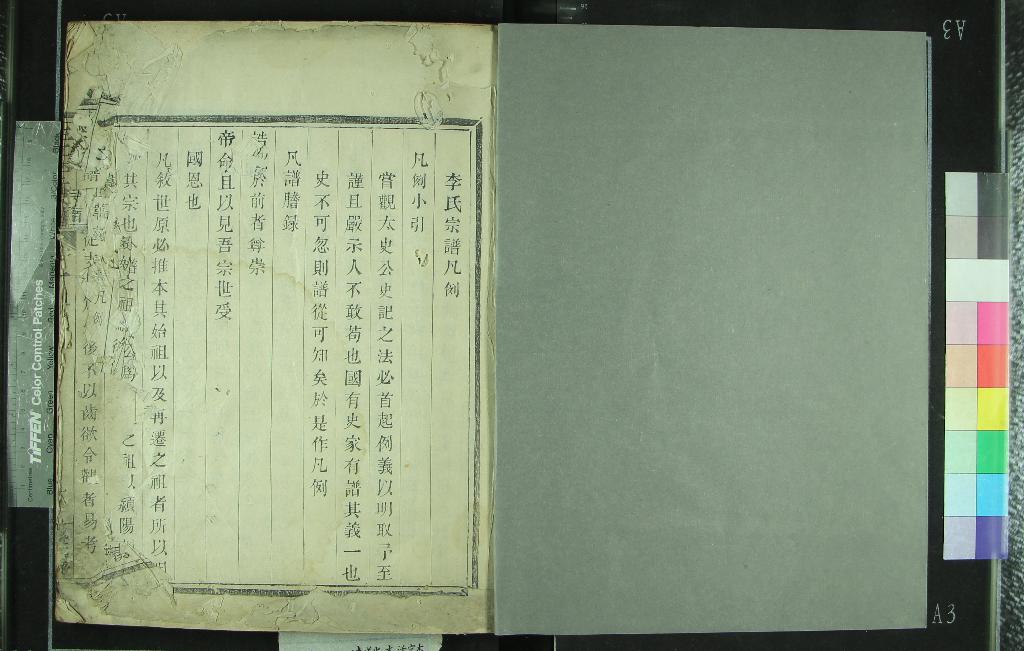 李氏宗譜凡例
凡例小引
嘗觀太史公史記之法必首起例義以明取予至
謹且嚴示人不敢苟也國有史家有譜其義一也
史不可忽則譜從可知矣於是作凡例
凡譜謄錄
誥 於前者尊崇
帝命且以見吾宗世受
國恩也
凡敘世原必推本其始祖以及再遷之祖者所以明
其宗也 之祖 之祖以潁陽
譜 後 以齒欲令觀者易考
TIFFEN Color Control Patches
A3
A3